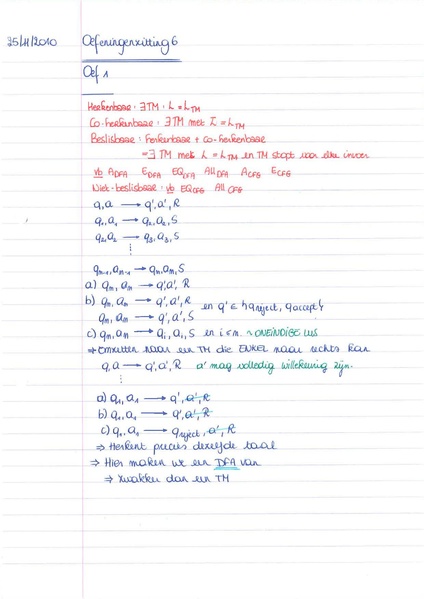 25/11/2010 Oefeningenzitting 6
Oef 1
Herkenbaar: ∃TM: L = L_TM
Co-herkenbaar: ∃TM met L̅ = L_TM
Beslisbaar: herkenbaar + co-herkenbaar
= ∃ TM met L = L_TM en TM stopt voor elke invoer
vb A_DFA E_DFA EQ_DFA ALL_DFA A_CFG E_CFG
Niet-beslisbaar: vb EQ_CFG ALL_CFG
q,a → q',a',R
q₁,a₁ → q₂,a₂,S
q₂,a₂ → q₃,a₃,S
⋮
qₙ₋₁,aₙ₋₁ → qₙ,aₙ,S
a) qₙ,aₙ → q',a',R
b) qₙ,aₙ → q',a',R en q' ∈ {qreject, qaccept}
qₙ,aₙ → q',a',S
c) qₙ,aₙ → qᵢ,aᵢ,S en i ≤ n. ~ ONEINDIGE LUS
⇒ Omzetten naar een TM die ENKEL naar rechts kan
q,a → q',a',R a' mag volledig willekeurig zijn.
⋮
a) q₁,a₁ → q',a',R
b) q₁,a₁ → q',a',R
c) q₁,a₁ → qreject,a',R
⇒ Herkent precies dezelfde taal
⇒ Hier maken we een DFA van
⇒ Zwakker dan een TM